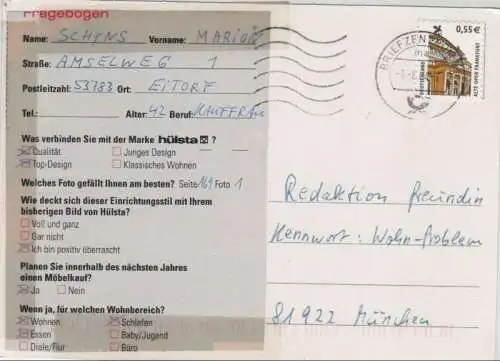 Fragebogen
Name: SCHINS Vorname: MARION
Straße: AMSELWEG 1
Postleitzahl: 53783 Ort: EITORF
Tel.: Alter: 42 Beruf: KAUFFRAU
Was verbinden Sie mit der Marke hülsta ?
Qualität Junges Design
Top-Design Klassisches Wohnen
Welches Foto gefällt Ihnen am besten? Seite 169 Foto 1
Wie deckt sich dieser Einrichtungsstil mit Ihrem
bisherigen Bild von Hülsta?
Voll und ganz
Gar nicht
Ich bin positiv überrascht
Planen Sie innerhalb des nächsten Jahres
einen Möbelkauf?
Ja Nein
Wenn ja, für welchen Wohnbereich?
Wohnen Schlafen
Essen Baby/Jugend
Diele/Flur Büro
BRIEFZEN
0,55€
ALTE OPER FRANKFURT
DEUTSCHLAND
Redaktion freundin
Kennwort: Wohn-Problem
81922 München